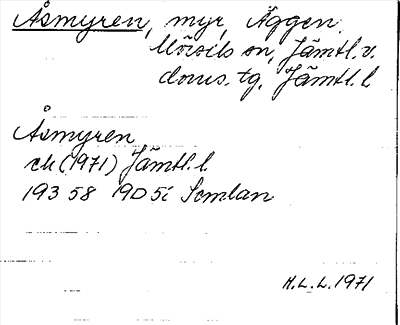 Åsmyren, myr, Äggen,
Mörsils sn, Jämtl. v.
doms. tg, Jämtl. l
Åsmyren
ek (1971) Jämtl. l.
193 58 19D 5i Semlan
H.L.L. 1971